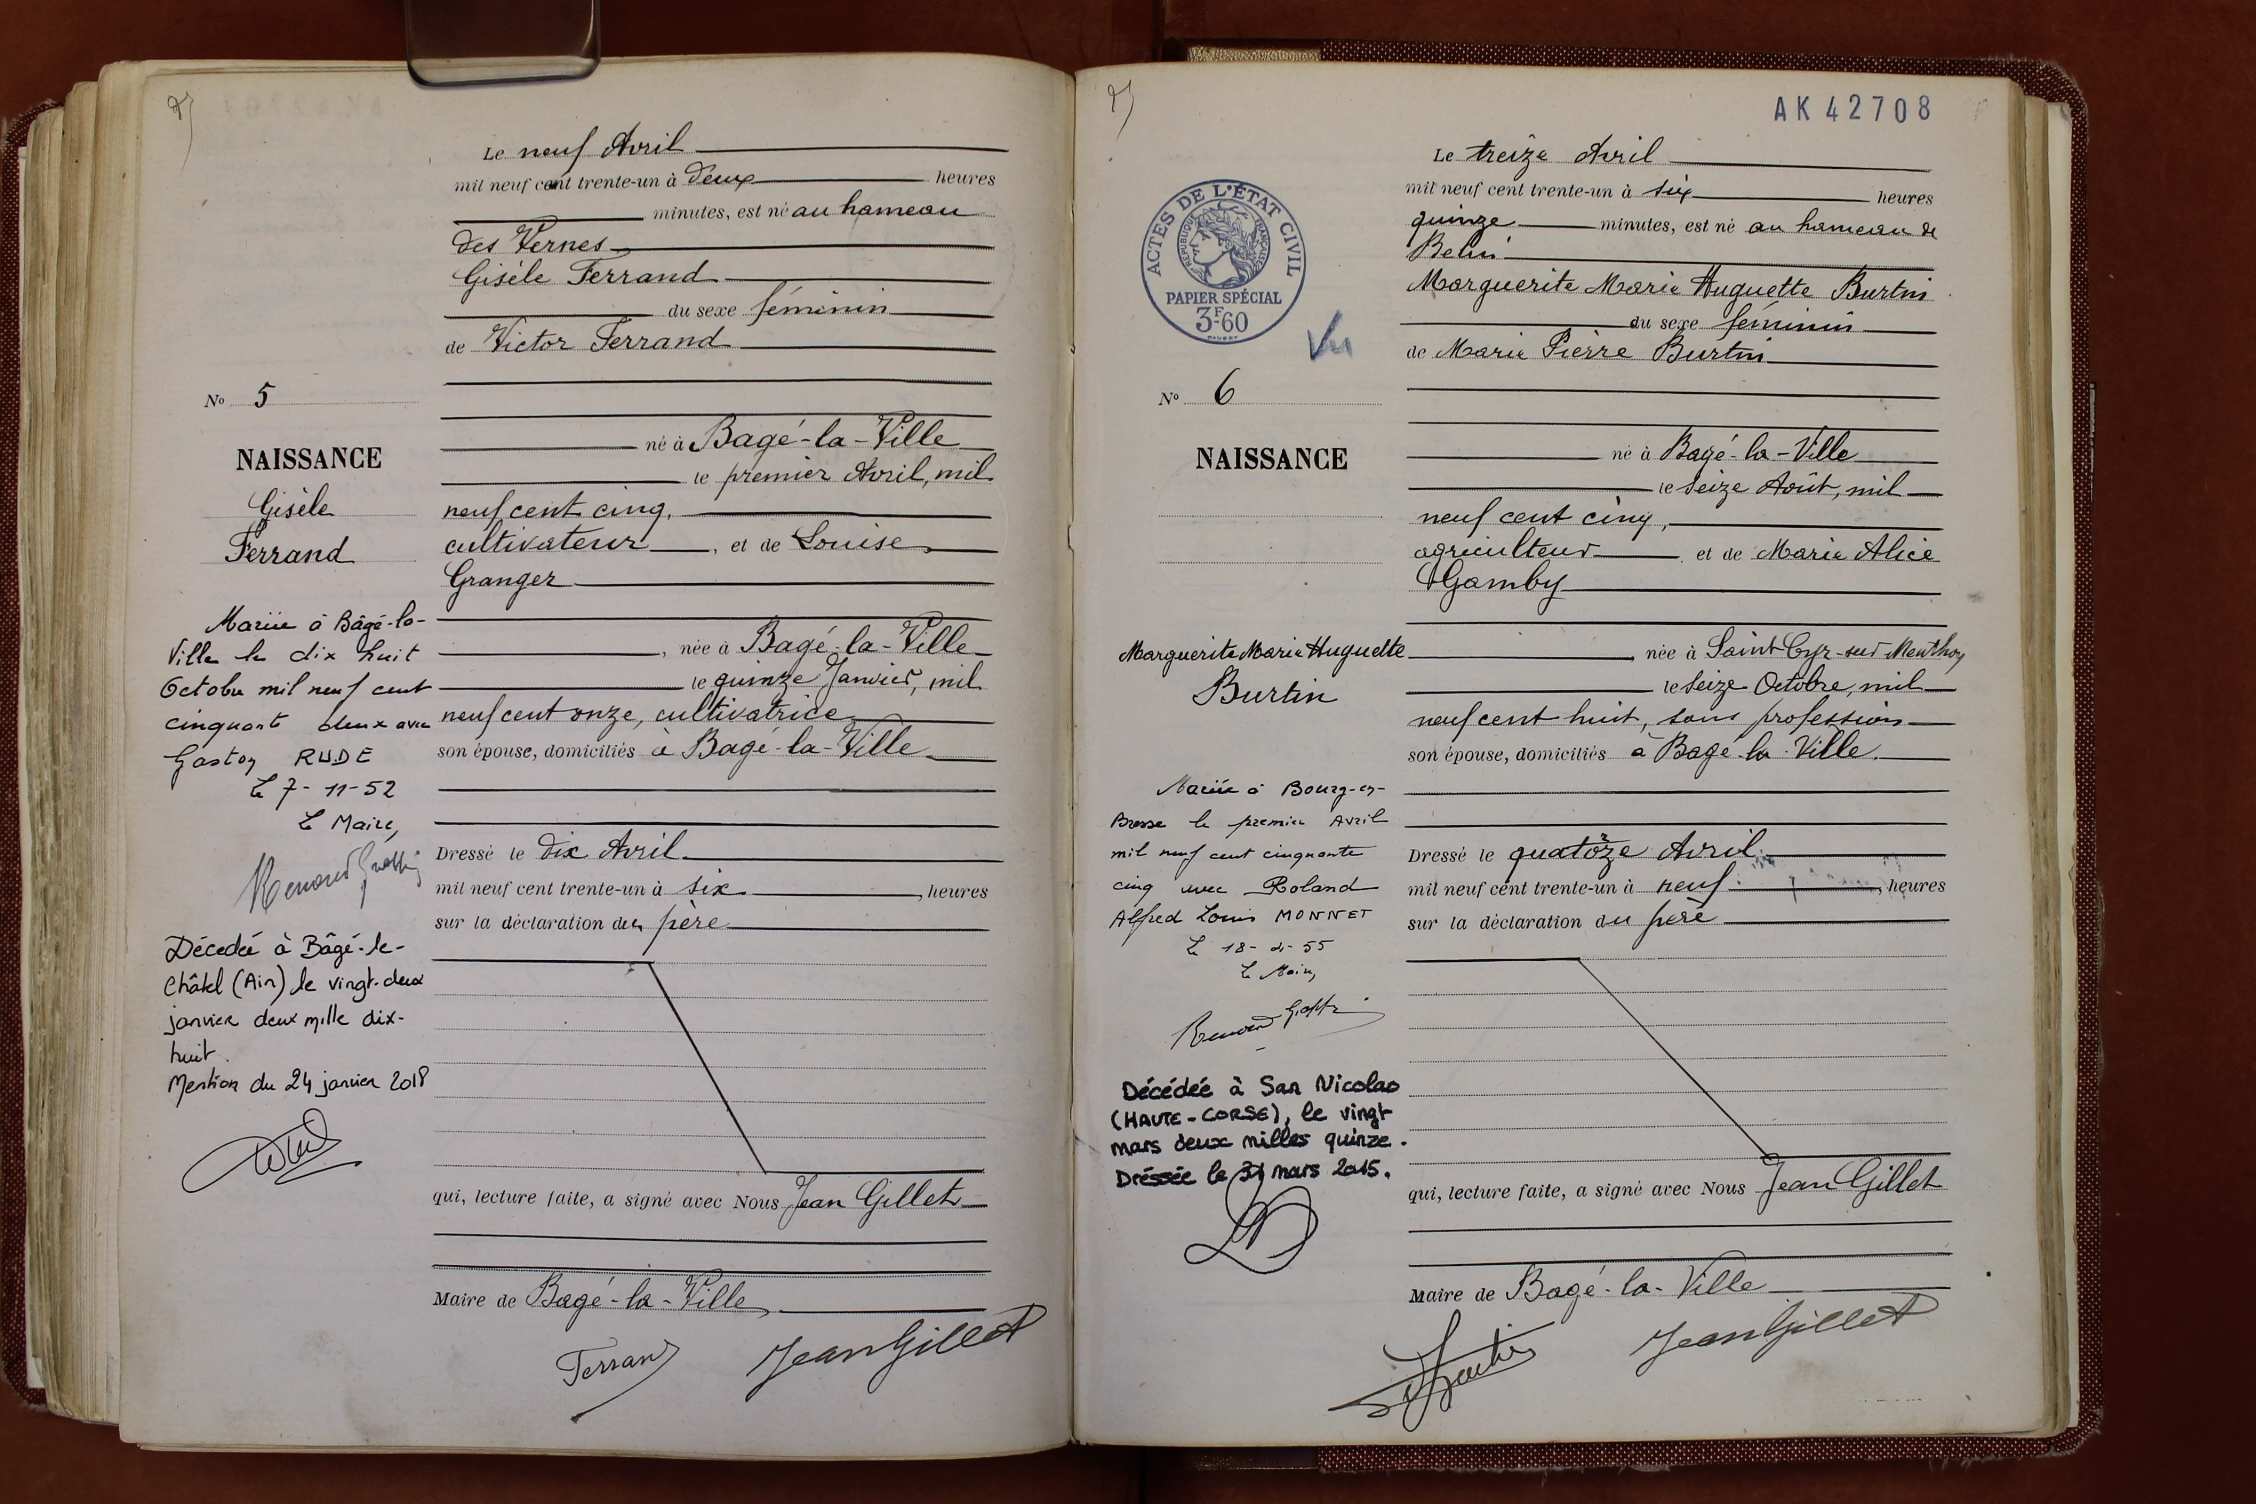 Le neuf Avril
mil neuf cent trente-un à deux heures
minutes, est né au hameau
des Vernes
Gisèle Ferrand
du sexe féminin
de Victor Ferrand
No 5
né à Bagé-la-Ville
NAISSANCE
le premier Avril, mil
Gisèle
neuf cent cinq,
Ferrand
cultivateur, et de Louise
Granger
Mariée à Bâgé-la-
Ville le dix huit
Octobre mil neuf cent
cinquante deux avec
Gaston RUDE
Le 7-11-52
Le Maire,
née à Bagé-la-Ville
le quinze Janvier, mil
neuf cent onze, cultivatrice
son épouse, domiciliés à Bagé-la-Ville
Dressé le dix Avril
mil neuf cent trente-un à six heures
sur la déclaration du père
Décedée à Bâgé-le-
Châtel (Ain) le vingt-deux
janvier deux mille dix-
huit.
Mention du 24 janvier 2018
qui, lecture faite, a signé avec Nous Jean Gillet
Maire de Bagé-la-Ville
Ferrand JeanGillet
AK 42708
Le treize Avril
mil neuf cent trente-un à six heures
quinze minutes, est né au hameau de
Marguerite Marie Huguette Burtin
du sexe féminin
de Marie Pierre Burtin
ACTES DE L'ÉTAT CIVIL
RÉPUBLIQUE FRANÇAISE
PAPIER SPÉCIAL
3F-60
Vu
No 6
né à Bagé-la-Ville
NAISSANCE
le seize Août, mil
neuf cent cinq,
agriculteur et de Marie Alice
Gamby
Marguerite Marie Huguette
Burtin
née à Saint Cyr-sur Menthon
le seize Octobre, mil
neuf cent huit, sans profession
son épouse, domiciliés à Bagé-la-Ville.
Mariée à Bourg-en-
Bresse le premier Avril
mil neuf cent cinquante
cinq avec Roland
Alfred Louis MONNET
Le 18-4-55
Le Maire,
Dressé le quatorze Avril
mil neuf cent trente-un à neuf heures
sur la déclaration du père
Décédée à San Nicolao
(HAUTE-CORSE), le vingt
mars deux milles quinze.
Dréssée le 31 mars 2015.
qui, lecture faite, a signé avec Nous Jean Gillet
Maire de Bagé-la-Ville
JeanGillet